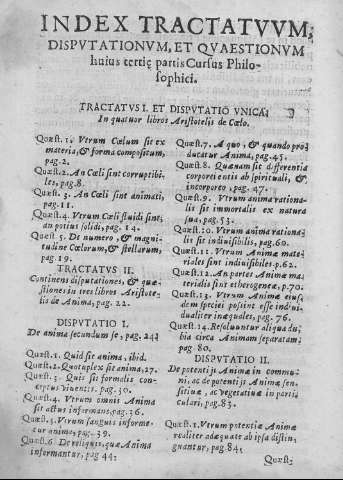 INDEX TRACTATVVM,
DISPVTATIONVM, ET QVAESTIONVM
huius tertię partis Cursus Philo-
sophici.
TRACTATVS I. ET DISPVTATIO VNICA.
In quatuor libros Aristotelis de Cœlo.
Quæst. 1. Vtrum Cœlum sit ex
materia, & forma compositum,
pag. 2.
Quæst. 2. An Cœli sint corruptibi-
les, pag. 8.
Quæst. 3. An Cœli sint animati,
pag. 11.
Quæst. 4. Vtrum Cœli fluidi sint,
an potius solidi, pag. 14.
Quæst. 5. De numero, & magni-
tudine Cœlorum, & stellarum,
pag. 19.
TRACTATVS II.
Continens disputationes, & quæ-
stiones in tres libros Aristote-
lis de Anima, pag. 22.
DISPVTATIO I.
De anima secundum se, pag. 24.
Quæst. 1. Quid sit anima, ibid.
Quæst. 2. Quotuplex sit anima, 27.
Quæst. 3. Quis sit formalis con-
ceptus viuentis. pag. 30.
Quæst. 4. Vtrum omnis Anima
sit actus informans, pag. 36.
Quæst. 5. Vtrum sanguis informe-
tur anima, pag. 39.
Quæst. 6 De reliquis, quæ Anima
informantur, pag 44.
Quæst. 7. A quo, & quando pro
ducatur Anima, pag. 45.
Quæst. 8. Quænam sit differentia
corporei entis ab spirituali, &
incorporeo, pag. 47.
Quæst. 9. Vtrum anima rationa-
lis sit immortalis ex natura
sua, pag. 53.
Quæst. 10. Vtrum anima rationa-
lis sit indiuisibilis, pag. 60.
Quæst. 11. Vtrum Animæ mate-
riales sint indiuisibiles p. 62.
Quæst. 12. An partes Animæ ma-
terialis sint etherogeneæ, p. 70.
Quæst. 13. Vtrum Animæ eius-
dem speciei possint esse indiui-
dualiter inæquales, pag. 76.
Quæst. 14. Resoluuntur aliqua du-
bia circa Animam separatam,
pag. 80.
DISPVTATIO II.
De potentijs Animæ in commu-
ni, ac de potentijs Animæ sen-
sitiuæ, ac vegetatiuæ in parti-
culari, pag. 83.
Quæst. 1. Vtrum potentiæ Animæ
realiter adæquate ab ipsa distin-
guantur, pag. 84.
Quæst.